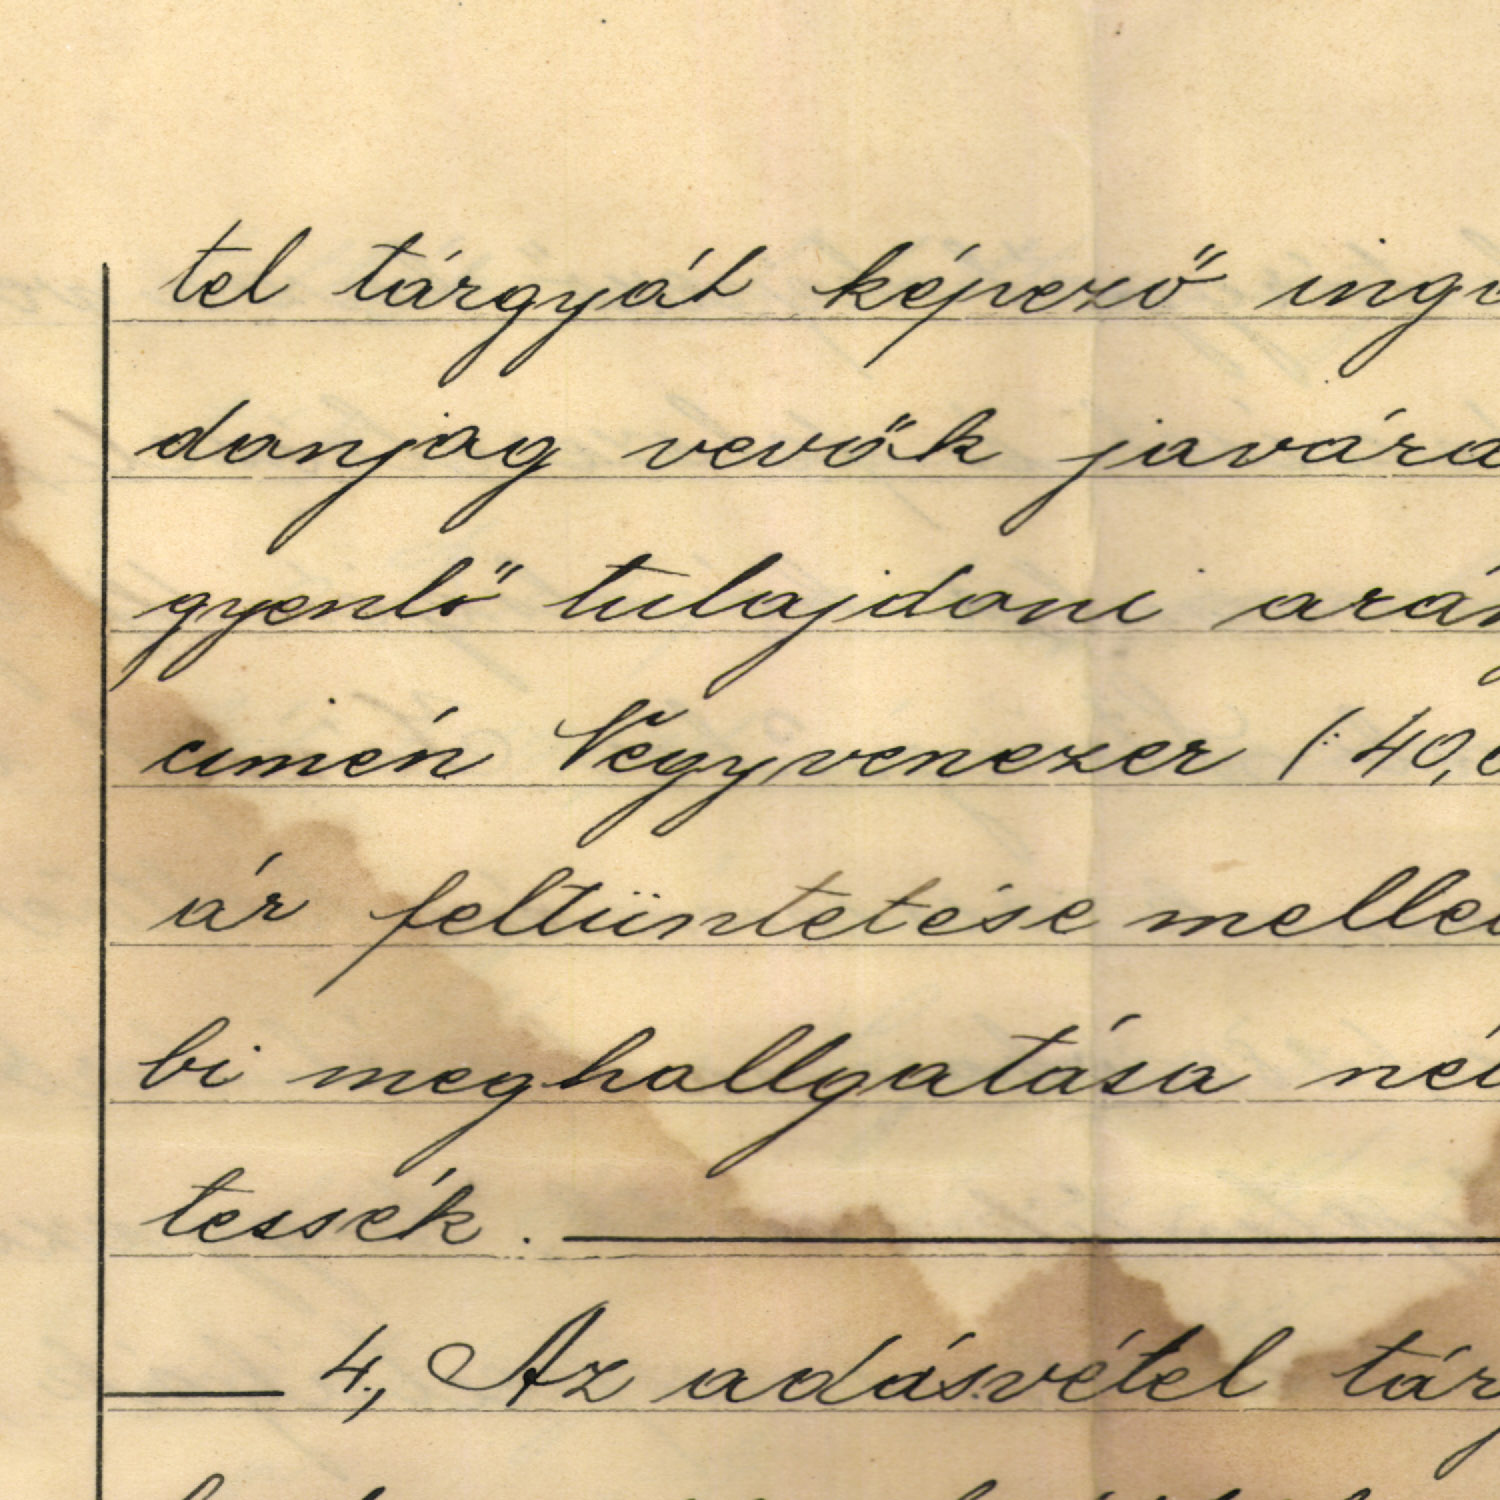 tel tárgyát képező ingo
danjog vevők javára
gyenlő tulajdoni arán
cimén Negyvenezer (: 40,0
ár feltüntetése mellet
bi meghallgatása nél
tessék.
4., Az adásvétel tár